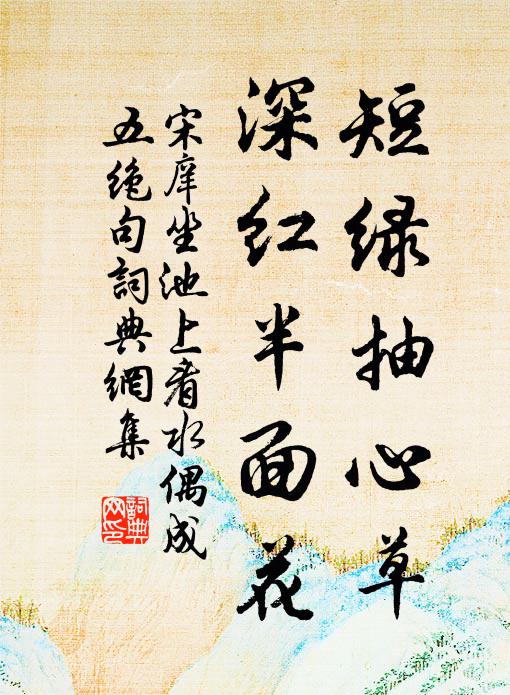 短绿抽心草
深红半面花
宋庠坐池上看水偶成
五绝句詞典網集
詞典网印